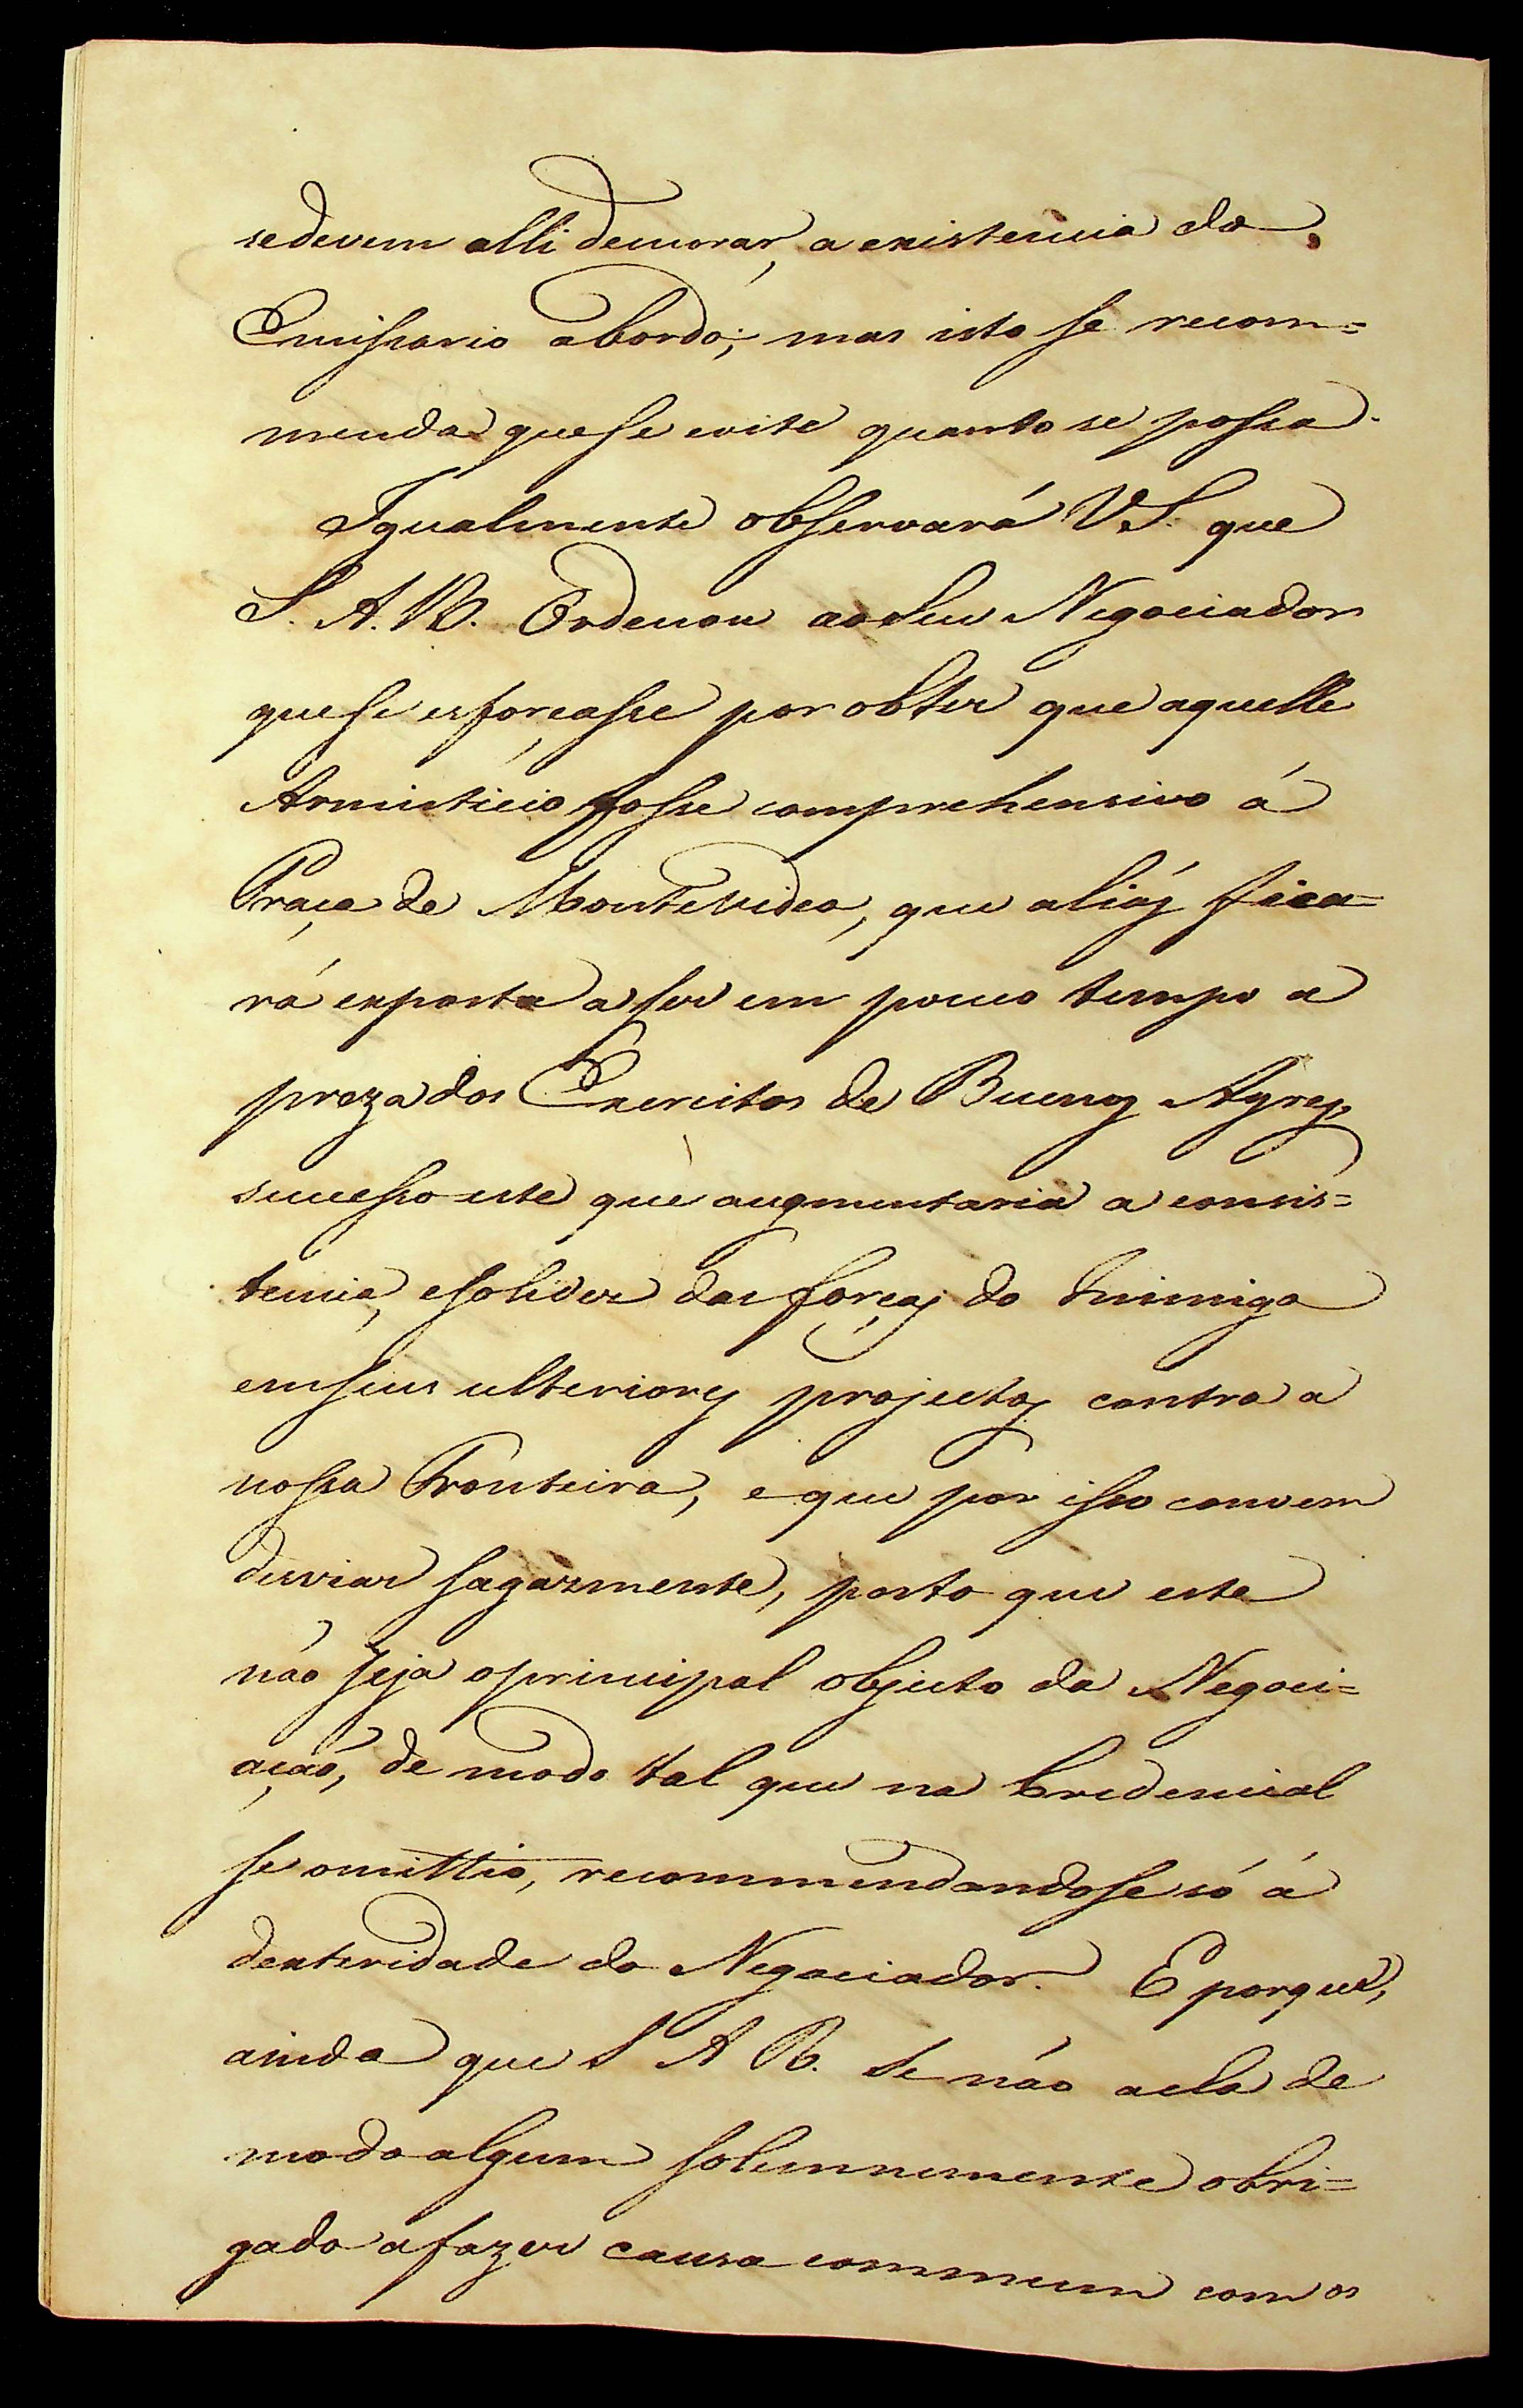 se devem alli demorar, a existencia do
Emissario abordo; mas isto se recom=
menda que se evite quanto se possa.
Igualmente observará V.S. que
S. A. R. Ordenou ao Seu Negociador
que se esforçasse por obter que aquelle
Armisticio fosse comprehensivo á
Praça de Montevideo, que aliás fica=
rá exposta a ser em pouco tempo a
preza dos Exercitos de Buenos Ayres,
sucesso este que augmentaria a consis=
tencia, e solidez das forças do Inimigo
em seus ulteriores projectos contra a
nossa Fronteira, e que por isso convem
desviar sagazmente, posto que este
não seja o principal objecto da Negoci=
ação, de modo tal que na Credencial
se omittio, recommendandose só á
dexteridade do Negociador. E porque,
ainda que S A R. Se não acha de
modo algum solemnemente obri=
gado a fazer causa commum com os